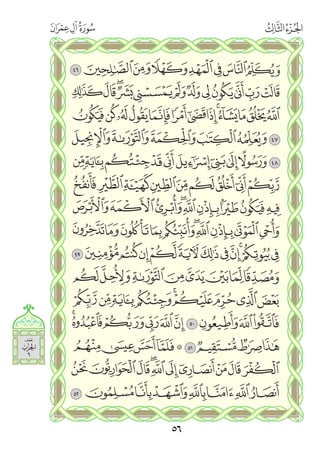 الجزء الثالث
سورة آل عمران
وَيُكَلِّمُ النَّاسَ فِي الْمَهْدِ وَكَهْلًا وَمِنَ الصَّالِحِينَ ٤٦
قَالَتْ رَبِّ أَنَّىٰ يَكُونُ لِي وَلَدٌ وَلَمْ يَمْسَسْنِي بَشَرٌ ۖ قَالَ كَذَٰلِكِ
اللَّهُ يَخْلُقُ مَا يَشَاءُ ۚ إِذَا قَضَىٰ أَمْرًا فَإِنَّمَا يَقُولُ لَهُ كُن فَيَكُونُ
٤٧ وَيُعَلِّمُهُ الْكِتَابَ وَالْحِكْمَةَ وَالتَّوْرَاةَ وَالْإِنجِيلَ
٤٨ وَرَسُولًا إِلَىٰ بَنِي إِسْرَائِيلَ أَنِّي قَدْ جِئْتُكُم بِآيَةٍ مِّن
رَّبِّكُمْ ۖ أَنِّي أَخْلُقُ لَكُم مِّنَ الطِّينِ كَهَيْئَةِ الطَّيْرِ فَأَنفُخُ
فِيهِ فَيَكُونُ طَيْرًا بِإِذْنِ اللَّهِ ۖ وَأُبْرِئُ الْأَكْمَهَ وَالْأَبْرَصَ
وَأُحْيِي الْمَوْتَىٰ بِإِذْنِ اللَّهِ ۖ وَأُنَبِّئُكُم بِمَا تَأْكُلُونَ وَمَا تَدَّخِرُونَ
فِي بُيُوتِكُمْ ۚ إِنَّ فِي ذَٰلِكَ لَآيَةً لَّكُمْ إِن كُنتُم مُّؤْمِنِينَ ٤٩
وَمُصَدِّقًا لِّمَا بَيْنَ يَدَيَّ مِنَ التَّوْرَاةِ وَلِأُحِلَّ لَكُم
بَعْضَ الَّذِي حُرِّمَ عَلَيْكُمْ ۚ وَجِئْتُكُم بِآيَةٍ مِّن رَّبِّكُمْ
فَاتَّقُوا اللَّهَ وَأَطِيعُونِ ٥٠ إِنَّ اللَّهَ رَبِّي وَرَبُّكُمْ فَاعْبُدُوهُ ۗ
هَٰذَا صِرَاطٌ مُّسْتَقِيمٌ ٥١ ۞ فَلَمَّا أَحَسَّ عِيسَىٰ مِنْهُمُ
الْكُفْرَ قَالَ مَنْ أَنصَارِي إِلَى اللَّهِ ۖ قَالَ الْحَوَارِيُّونَ نَحْنُ
أَنصَارُ اللَّهِ آمَنَّا بِاللَّهِ وَاشْهَدْ بِأَنَّا مُسْلِمُونَ ٥٢
نصف
الحزب
٦
٥٦